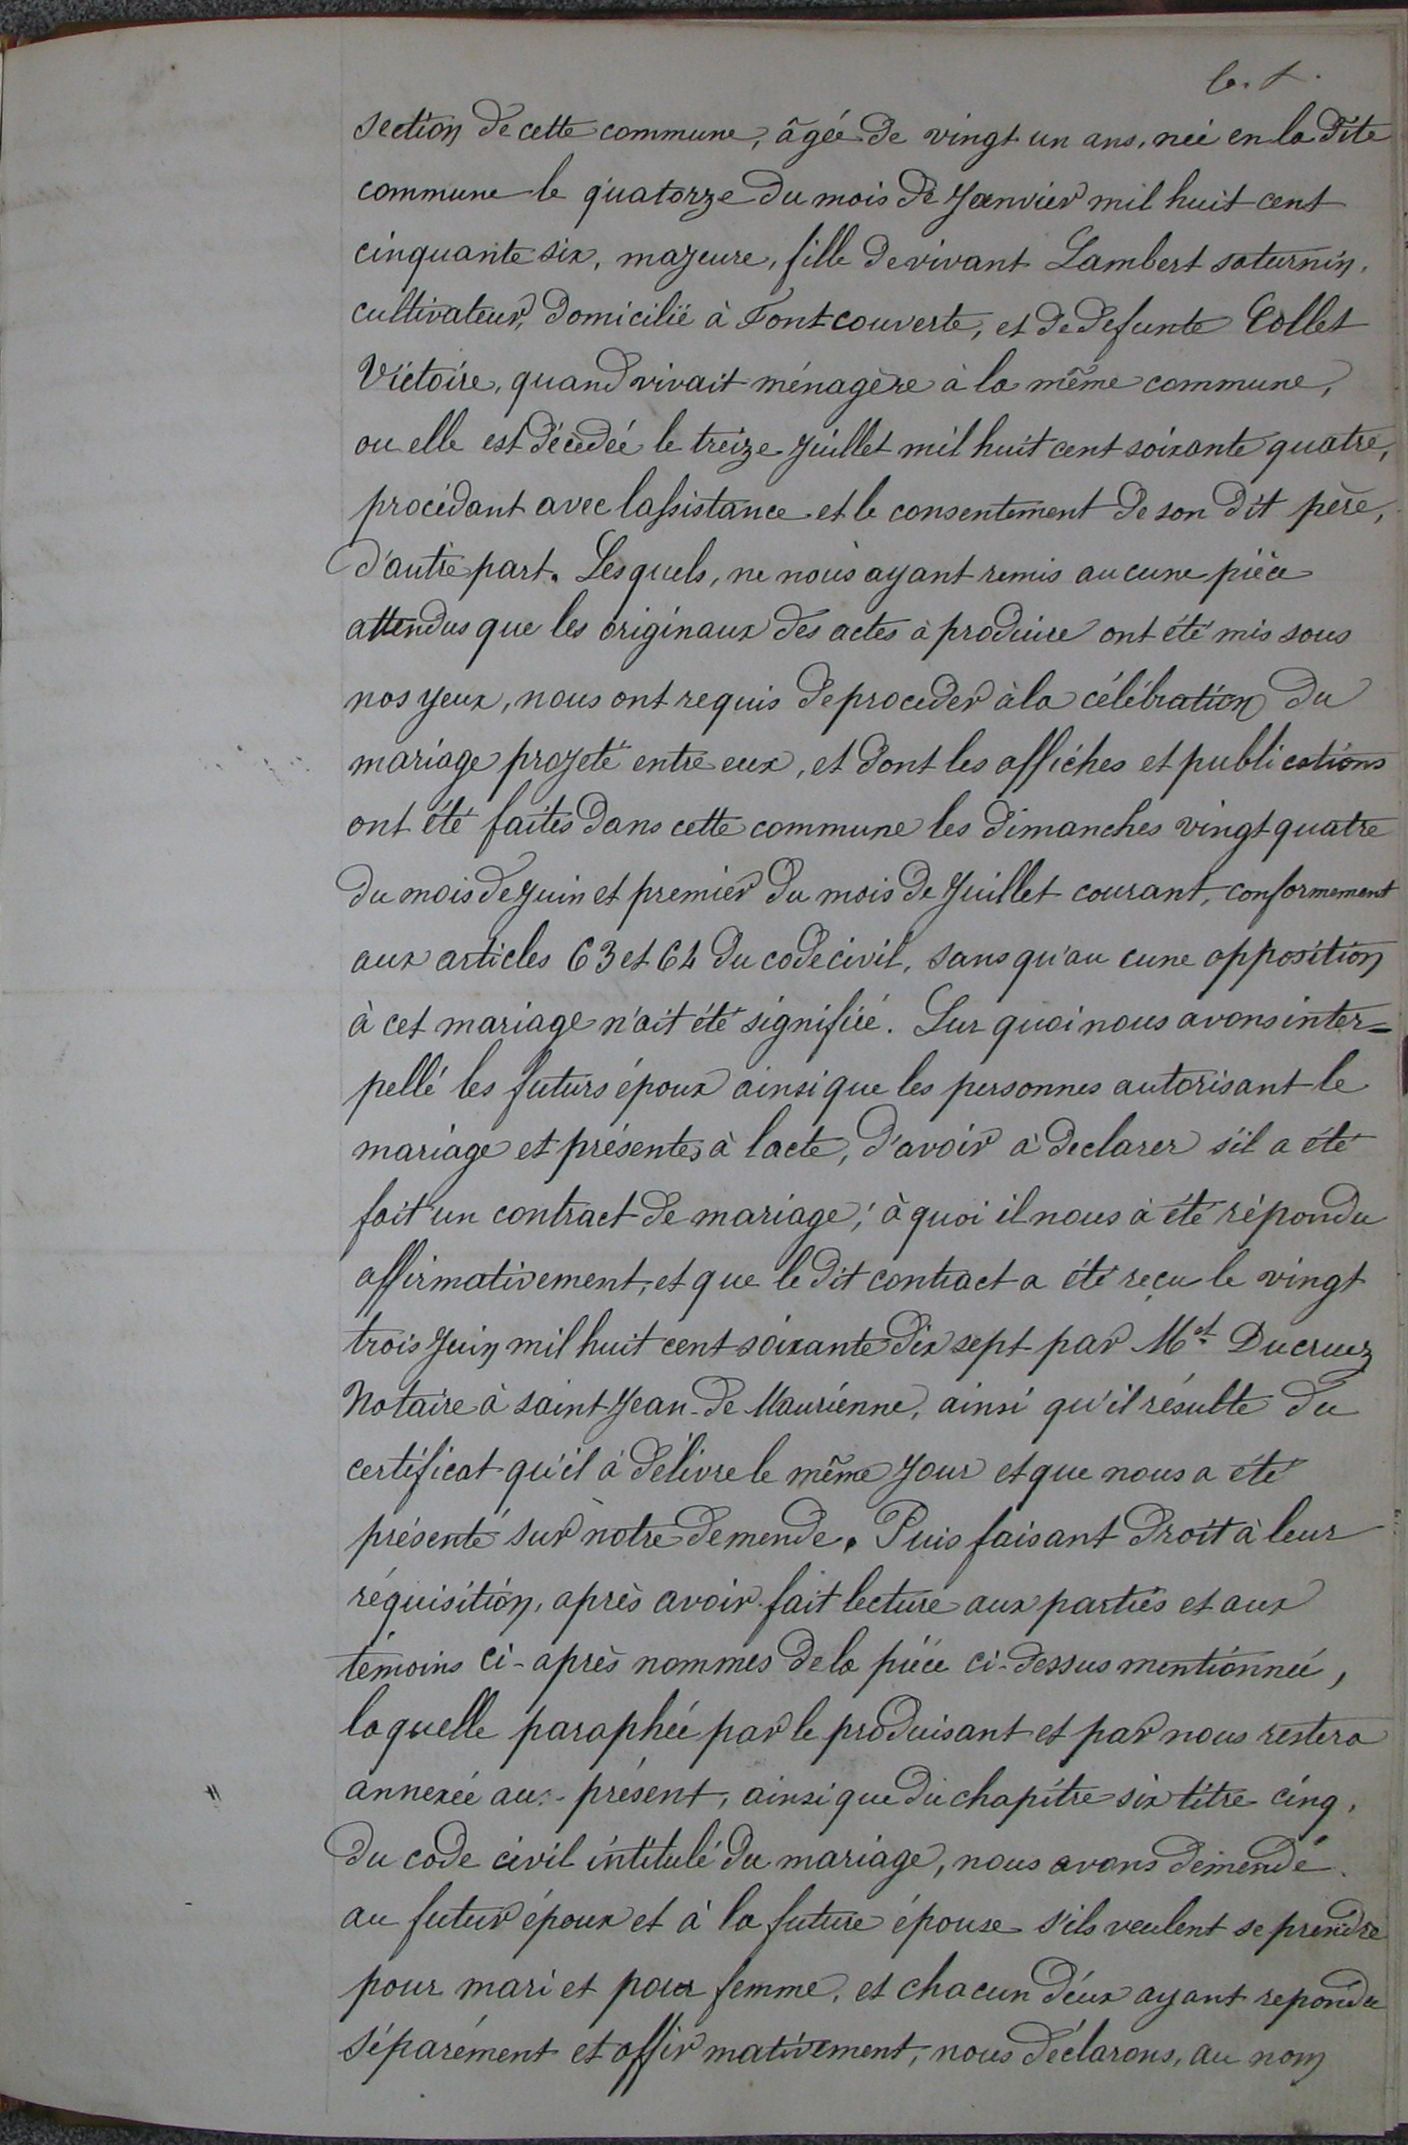 section de cette commune, âgée de vingt un ans, née en la dite
commune le quatorze du mois de Janvier mil huit cent
cinquante six, majeure, fille de vivant Lambert saturnin,
cultivateur, domicilié à Fontcouverte, et de defunte Collet
Victoire, quand vivait ménagère à la même commune,
ou elle est décédée le treize Juillet mil huit cent soixante quatre,
procédant avec lassistance et le consentement de son dit père,
d'autre part. Lesquels, ne nous ayant remis aucune pièce
attendus que les originaux des actes à produire ont été mis sous
nos yeux, nous ont requis de proceder à la célébration du
mariage projeté entre eux, et dont les affiches et publications
ont été faites dans cette commune les dimanches vingt quatre
du mois de Juin et premier du mois de Juillet courant, conformement
aux articles 63 et 64 du code civil, sans qu'au cune opposition
à cet mariage n'ait été signifiée. Sur quoi nous avons inter=
pellé les futurs époux ainsi que les personnes autorisant le
mariage et présentes à lacte, d'avoir à declarer s'il a été
fait un contract de mariage; à quoi il nous à été répondu
affirmativement, et que le dit contract a été reçu le vingt
trois Juin mil huit cent soixante dix sept par Mst Ducruez
Notaire à saint Jean-de Maurienne, ainsi qu'il résulte du
certificat qu'il à délivre le même jour et que nous a été
présenté sur notre demende. Puis faisant droit à leur
réquisition, après avoir fait lecture aux parties et aux
témoins ci-après nommes de la pièce ci-dessus mentionnée,
laquelle paraphée par le produisant et par nous restera
annexée au - présent, ainsi que du chapitre six titre cinq,
du code civil intitulé du mariage, nous avons demendé
au futur époux et à la future épouse s'ils veulent se prendre
pour mari et pour femme, et chacun d'eux ayant repondu
séparément et affirmativement, nous déclarons, au nom